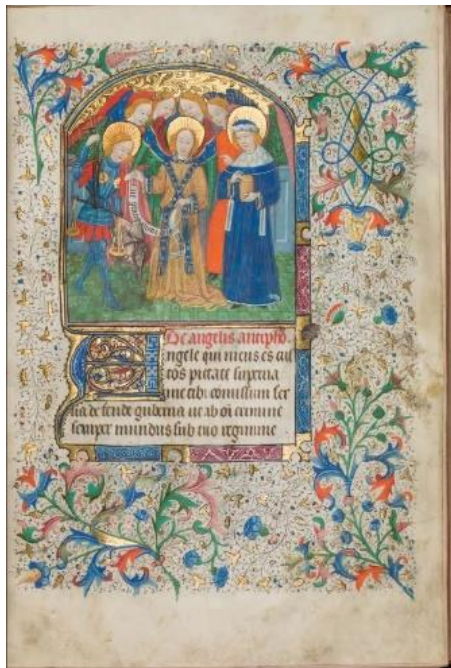 De angelis
Angele qui meus es cus
tos pietate superna
me tibi comissum ser
ua defende guberna ut ab oi crimine
semper mundus sub tuo regimine